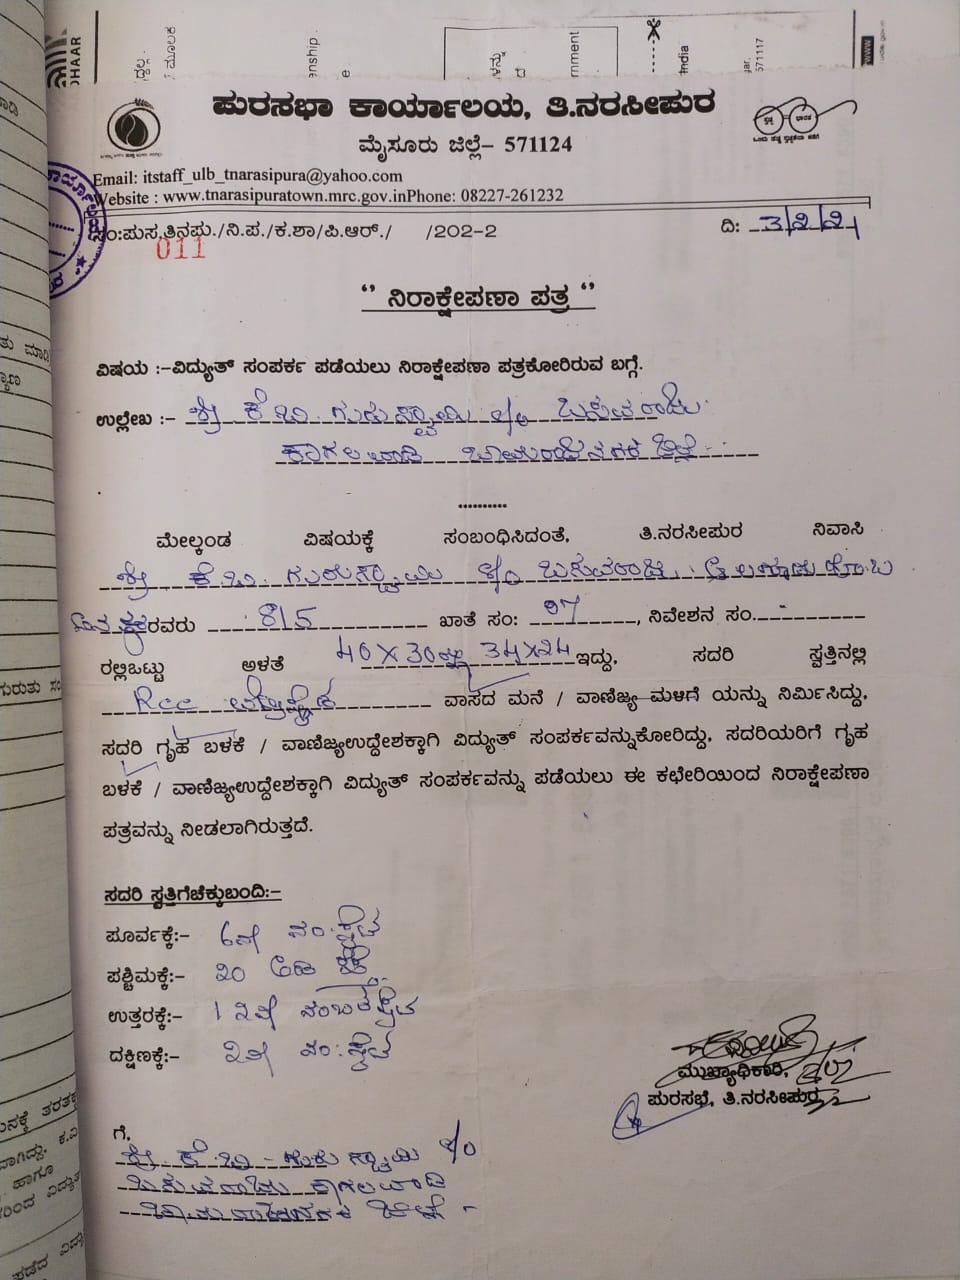 ಪುರಸಭಾ ಕಾರ್ಯಾಲಯ, ತಿ.ನರಸೀಪುರ
ಮೈಸೂರು ಜಿಲ್ಲೆ- 571124
Email: itstaff_ulb_tnarasipura@yahoo.com
Website : www.tnarasipuratown.mrc.gov.inPhone: 08227-261232
ಸಂ:ಪುಸ.ತಿನಪು./ನಿ.ಪ./ಕ.ಶಾ/ಪಿ.ಆರ್./ /202-2 ದಿ: 3/2/21
011
‘’ ನಿರಾಕ್ಷೇಪಣಾ ಪತ್ರ ‘’
ವಿಷಯ :-ವಿದ್ಯುತ್ ಸಂಪರ್ಕ ಪಡೆಯಲು ನಿರಾಕ್ಷೇಪಣಾ ಪತ್ರಕೋರಿರುವ ಬಗ್ಗೆ.
ಉಲ್ಲೇಖ :- ಶ್ರೀ ಕೆ.ಬಿ. ಗುರುಸ್ವಾಮಿ s/o ಬಸವರಾಜು
ಕಾಗಲವಾಡಿ ಚಾಮರಾಜನಗರ ಜಿಲ್ಲೆ
ಮೇಲ್ಕಂಡ ವಿಷಯಕ್ಕೆ ಸಂಬಂಧಿಸಿದಂತೆ, ತಿ.ನರಸೀಪುರ ನಿವಾಸಿ
ಶ್ರೀ ಕೆ.ಬಿ. ಗುರುಸ್ವಾಮಿ s/o ಬಸವರಾಜು
ರವರು 815 ಖಾತೆ ಸಂ: 07, ನಿವೇಶನ ಸಂ.
ರಲ್ಲಿಒಟ್ಟು ಅಳತೆ 40 X 30 34X24 ಇದ್ದು, ಸದರಿ ಸ್ವತ್ತಿನಲ್ಲಿ
Rcc ವಾಸದ ಮನೆ / ವಾಣಿಜ್ಯ ಮಳಿಗೆ ಯನ್ನು ನಿರ್ಮಿಸಿದ್ದು,
ಸದರಿ ಗೃಹ ಬಳಕೆ / ವಾಣಿಜ್ಯಉದ್ದೇಶಕ್ಕಾಗಿ ವಿದ್ಯುತ್ ಸಂಪರ್ಕವನ್ನುಕೋರಿದ್ದು, ಸದರಿಯರಿಗೆ ಗೃಹ
ಬಳಕೆ / ವಾಣಿಜ್ಯಉದ್ದೇಶಕ್ಕಾಗಿ ವಿದ್ಯುತ್ ಸಂಪರ್ಕವನ್ನು ಪಡೆಯಲು ಈ ಕಛೇರಿಯಿಂದ ನಿರಾಕ್ಷೇಪಣಾ
ಪತ್ರವನ್ನು ನೀಡಲಾಗಿರುತ್ತದೆ.
ಸದರಿ ಸ್ವತ್ತಿಗೆಚೆಕ್ಕುಬಂದಿ:-
ಪೂರ್ವಕ್ಕೆ:- 6ನೇ ನಂ: ಸೈಟು
ಪಶ್ಚಿಮಕ್ಕೆ:- 20 ಅಡಿ ರಸ್ತೆ
ಉತ್ತರಕ್ಕೆ:- 12ನೇ ನಂಬರ್ ಸೈಟು
ದಕ್ಷಿಣಕ್ಕೆ:- 2ನೇ ನಂ: ಸೈಟು
ಮುಖ್ಯಾಧಿಕಾರಿ,
ಪುರಸಭೆ, ತಿ.ನರಸೀಪುರ
ಗೆ,
ಶ್ರೀ ಕೆ.ಬಿ - ಗುರುಸ್ವಾಮಿ s/o
ಬಸವರಾಜು ಕಾಗಲವಾಡಿ
ಚಾಮರಾಜನಗರ ಜಿಲ್ಲೆ -